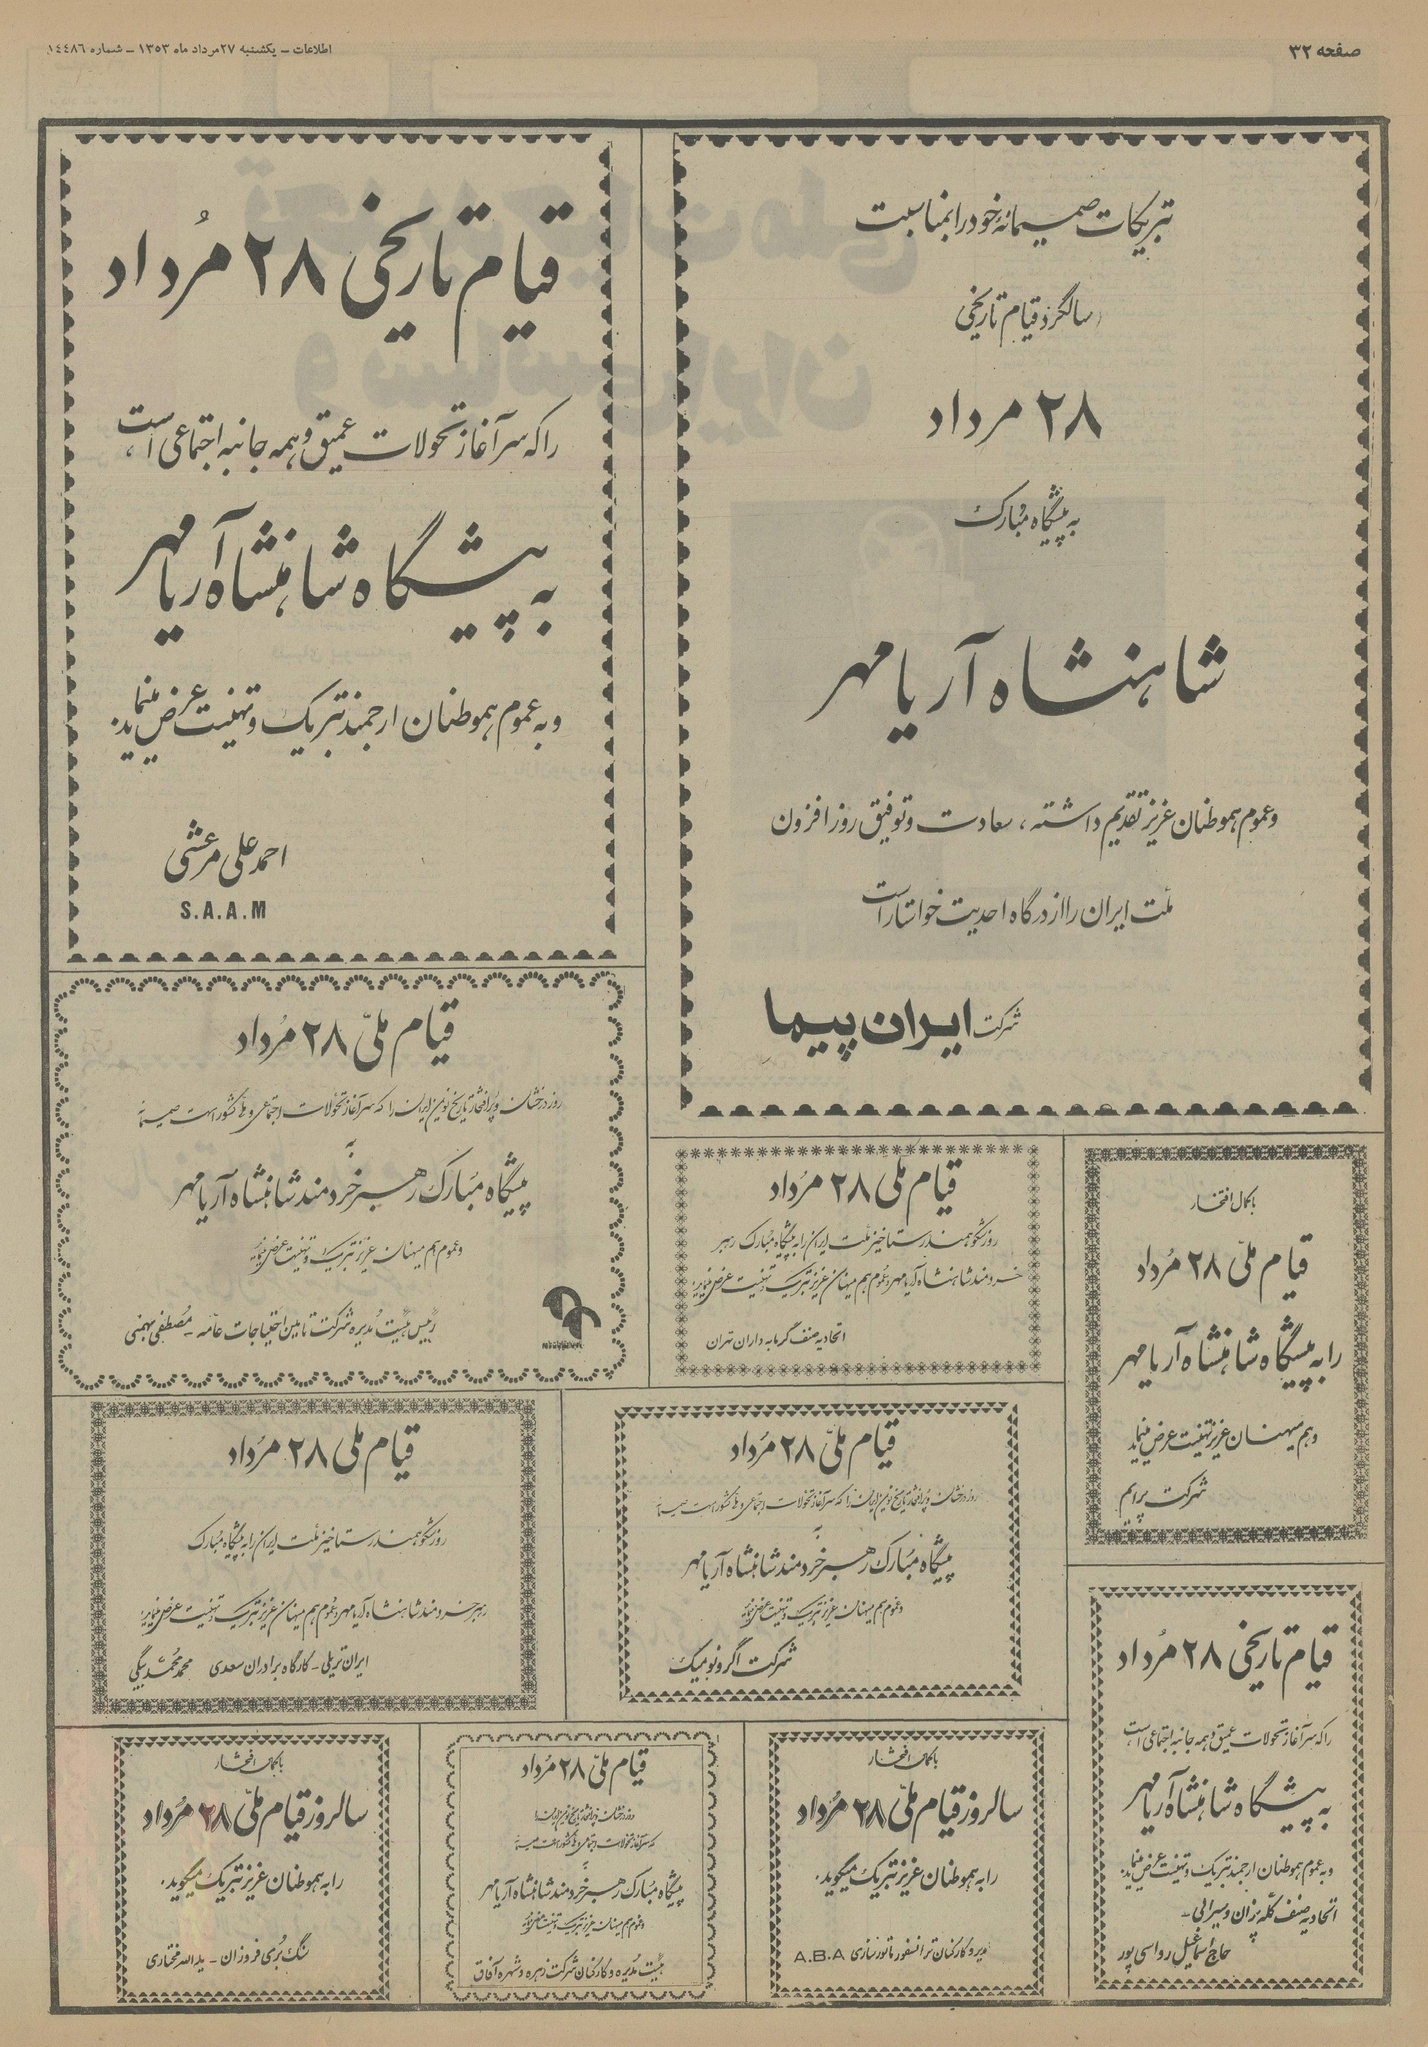 صفحه ۳۲
اطلاعات – یکشنبه ۲۷ مرداد ماه ۱۳۵۳ – شماره ۱۴۴۸۶
تبریکات صمیمانهٔ خود را بمناسبت
سالگرد قیام تاریخی
۲۸ مرداد
به پیشگاه مبارک
شاهنشاه آریامهر
و عموم هموطنان عزیز تقدیم داشته، سعادت و توفیق روزافزون
ملت ایران را از درگاه احدیت خواستار است
شرکت ایران پیما
قیام تاریخی ۲۸ مُرداد
را که سرآغاز تحولات عمیق و همه جانبه اجتماعی است،
به پیشگاه شاهنشاه آریامهر
و به عموم هموطنان ارجمند تبریک و تهنیت عرض مینماید.
احمدعلی مرعشی
S.A.A.M
قیام ملّی ۲۸ مُرداد
روز درخشان و پرافتخار تاریخ نوین ایران را که سرآغاز تحولات اجتماعی و ملی کشور است صمیمانه
به
پیشگاه مبارک رهبر خردمند شاهنشاه آریامهر
و عموم هم میهنان عزیز تبریک و تهنیت عرض مینماید
رئیس هیئت مدیره شرکت تامین احتیاجات عامه – مصطفی بهمنی
قیام ملی ۲۸ مرداد
روز شکوهمند رستاخیز ملت ایران را به پیشگاه مبارک رهبر
خردمند شاهنشاه آریامهر و عموم هم میهنان عزیز تبریک و تهنیت عرض مینماید
اتحادیه صنف گرمابه داران تهران
با کمال افتخار
قیام ملّی ۲۸ مُرداد
را به پیشگاه شاهنشاه آریامهر
و هم میهنان عزیز تهنیت عرض مینماید
شرکت پرایم
قیام ملی ۲۸ مرُداد
روز شکوهمند رستاخیز ملت ایران را به پیشگاه مبارک
رهبر خردمند شاهنشاه آریامهر و عموم هم میهنان عزیز تبریک و تهنیت عرض مینماید
ایران تریلی – کارگاه برادران سعدی محمد محمدبیگی
قیام ملّی ۲۸ مرُداد
روز درخشان و پرافتخار تاریخ نوین ایران را که سرآغاز تحولات اجتماعی و ملی کشور است صمیمانه
به
پیشگاه مبارک رهبر خردمند شاهنشاه آریامهر
و عموم هم میهنان عزیز تبریک و تهنیت عرض مینماید
شرکت اگرونومیک
قیام تاریخی ۲۸ مُرداد
را که سرآغاز تحولات عمیق و همه جانبه اجتماعی است
به پیشگاه شاهنشاه آریامهر
و به عموم هموطنان ارجمند تبریک و تهنیت عرض مینماید.
اتحادیه صنف کله پزان و سیرابی –
حاج اسماعیل رواسی پور
با کمال افتخار
سالروز قیام ملّی ۲۸ مُرداد
را به هموطنان عزیز تبریک میگوید.
مدیر و کارکنان ترانسفورماتورسازی A.B.A
قیام ملّی ۲۸ مرُداد
روز درخشان و پرافتخار تاریخ نوین ایران را
که سرآغاز تحولات اجتماعی و ملی کشور است صمیمانه
به
پیشگاه مبارک رهبر خردمند شاهنشاه آریامهر
و عموم هم میهنان عزیز تبریک و تهنیت عرض مینماید
هیئت مدیره و کارکنان شرکت زهره و شهره آفاق
با کمال افتخار
سالروز قیام ملّی ۲۸ مُرداد
را به هموطنان عزیز تبریک میگوید.
سنگ بری فروزان – یدالله مختاری